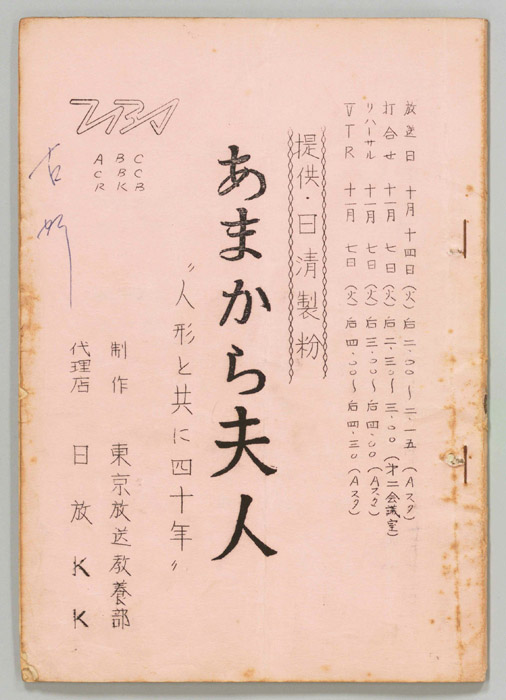 放送日 十月 十四日（火）后 二.〇〇〜二.一五（Aスタ）
打合せ 十一月 七日（火）后 二.三〇〜三.〇〇（第二会議室）
リハーサル 十一月 七日（火）后 三.〇〇〜后 四.〇〇（Aスタ）
VTR 十一月 七日（火）后 四.〇〇〜后 四.三〇（Aスタ）
提供・日清製粉
あまから夫人
〝人形と共に四十年〟
CCB
BBK
ACR
制作 東京放送教養部
代理店 日放KK